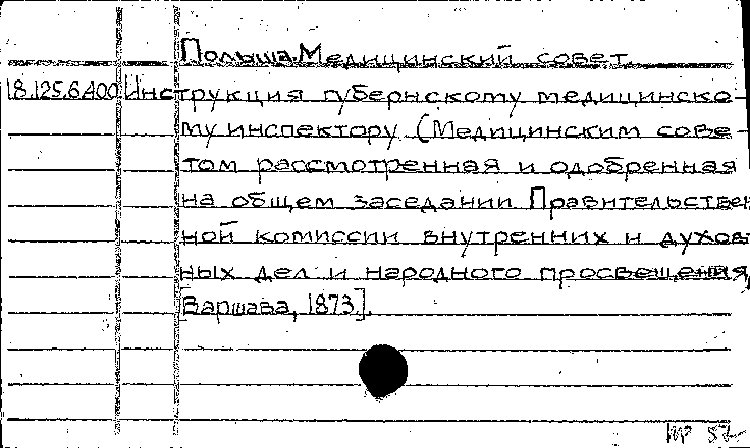 Польша. Медицинский совет.
18.125.6.400 Инструкция губернскому медицинско-
му инспектору (Медицинским сове-
том рассмотренная и одобренная
на общем заседании Правительствен
ной комиссии внутренних и духов
ных дел и народного просвещения,
[Варшава, 1873].